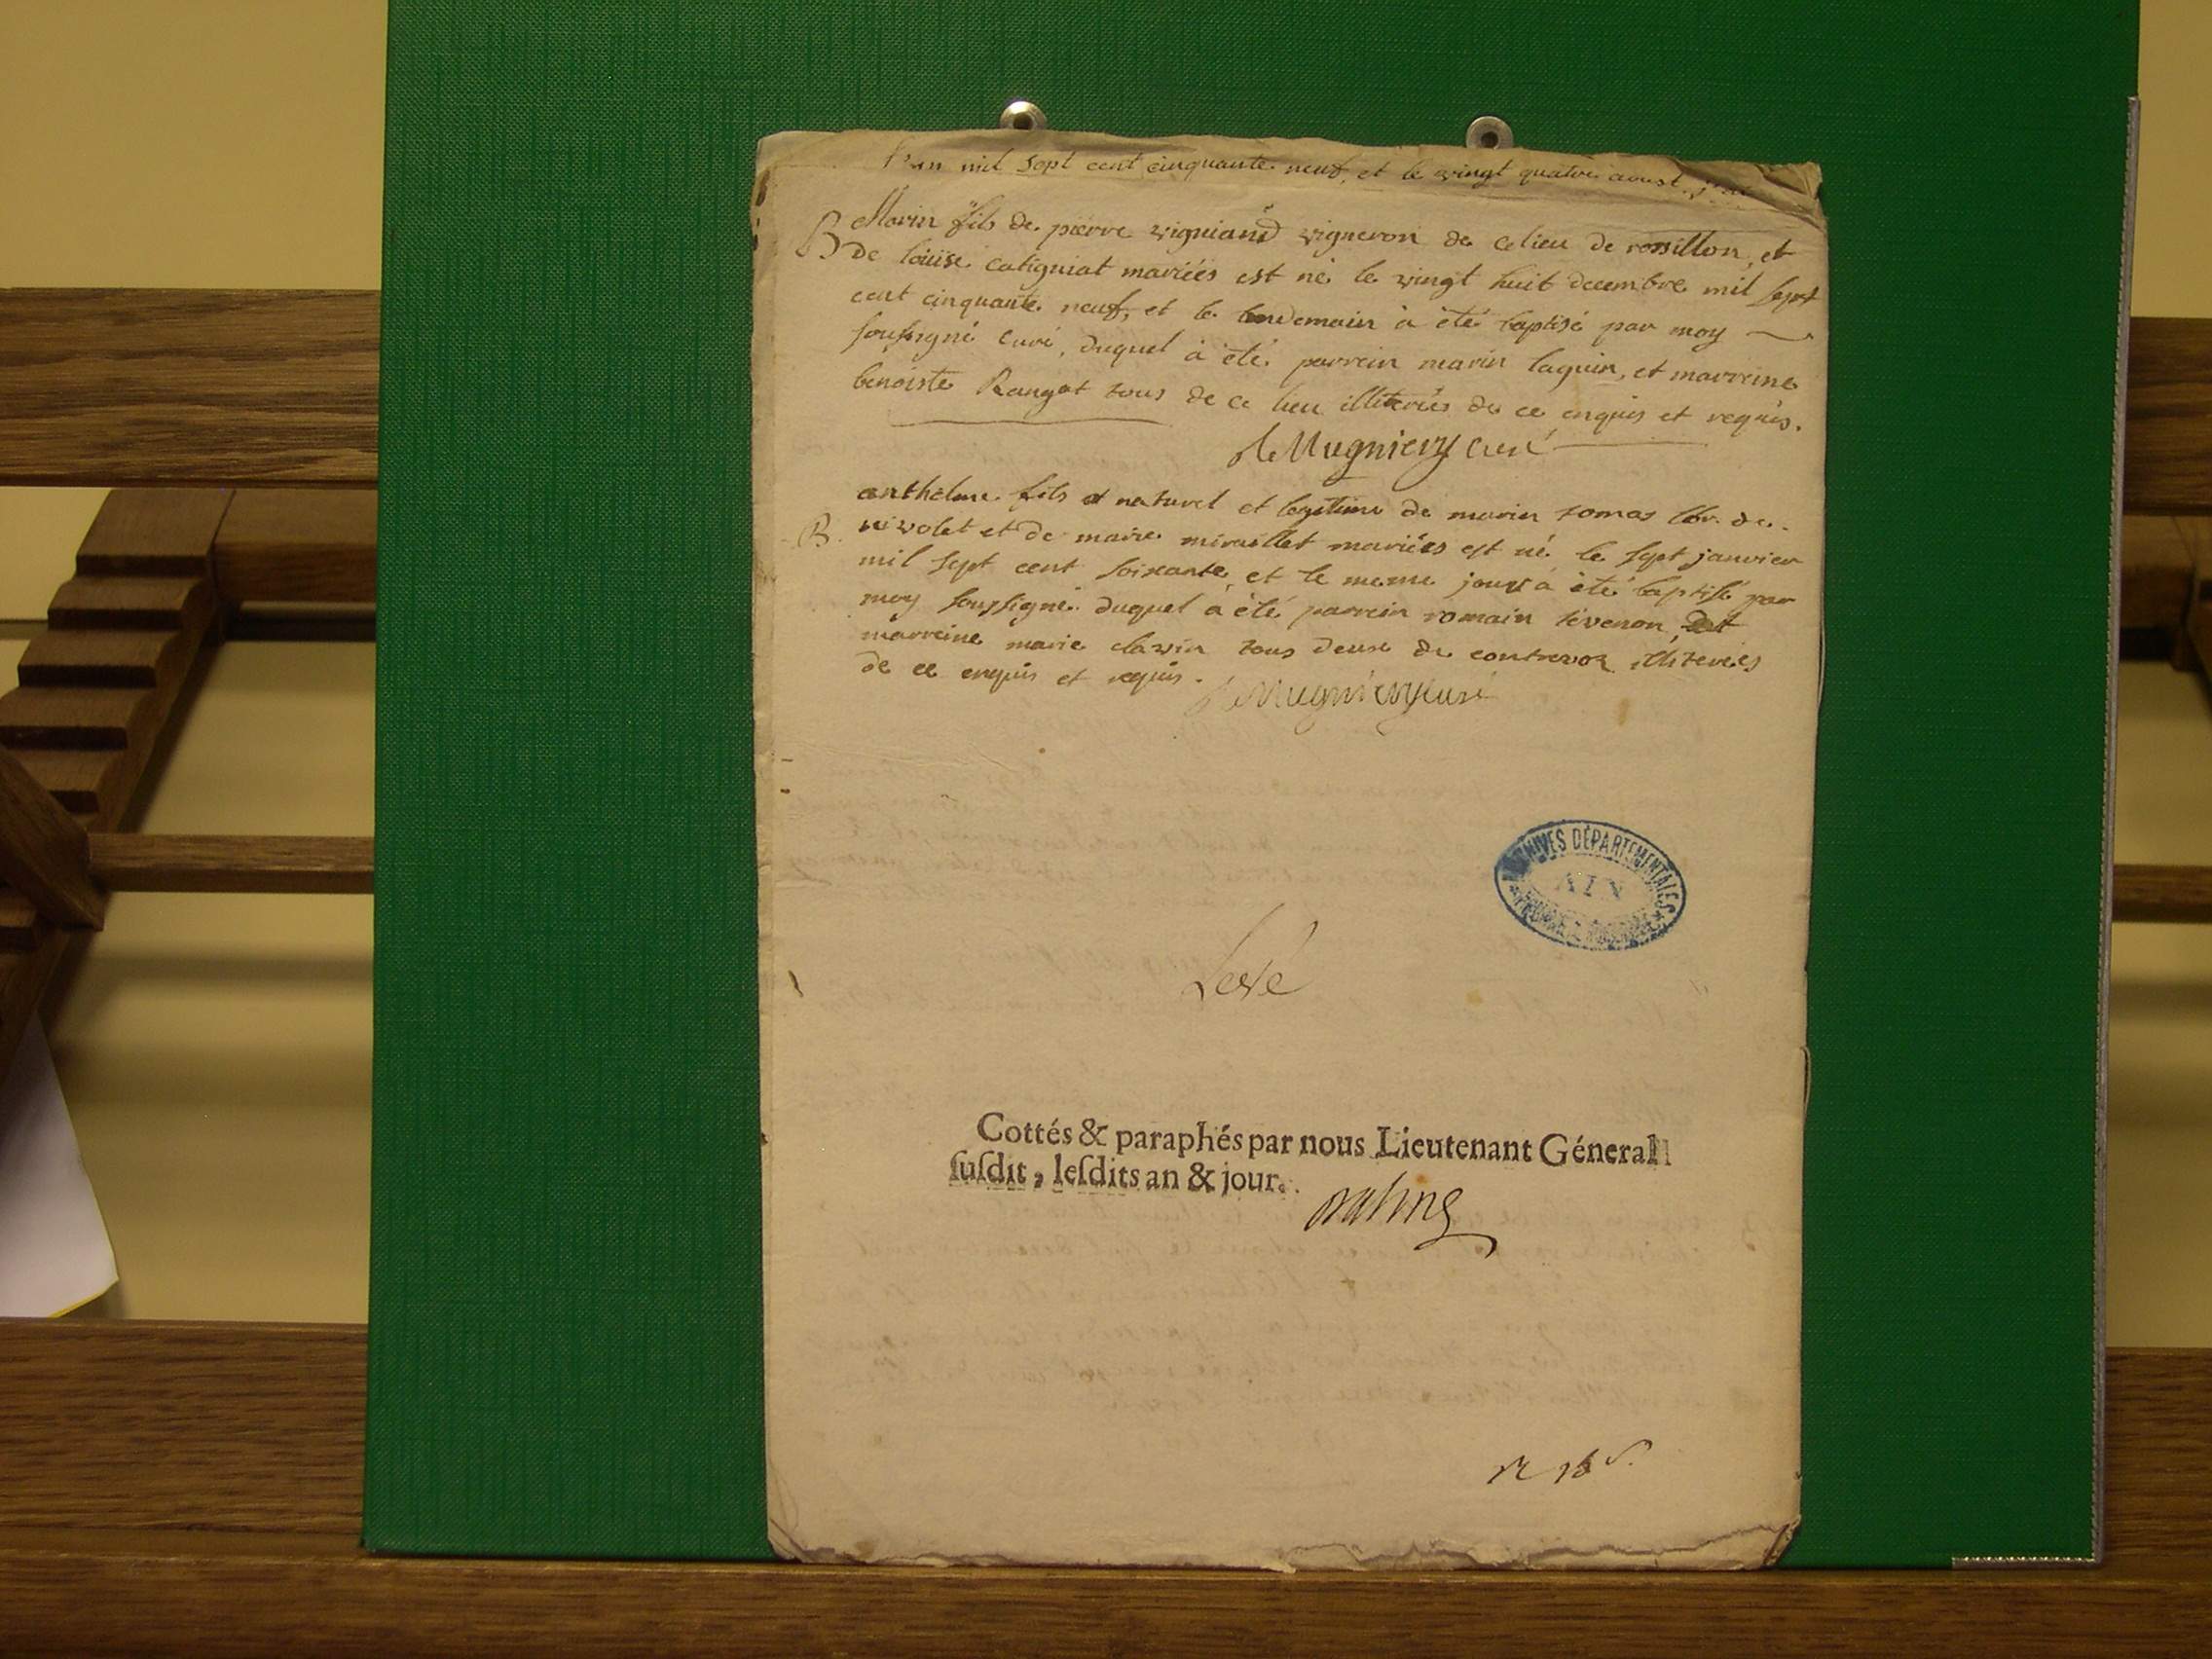 L'an mil sept cent cinquante neuf, et le vingt quatre aoust
B Marin fils de pierre vigniand vigneron de ce lieu de rossillon, et
de loüise catigniat mariées est né le vingt huit decembre mil sept
cent cinquante neuf, et le lendemain à été baptisé par moy
soussigné curé, duquel à été parrein marin laguin, et marreine
benoiste Rangot tous de ce lieu illiterées de ce enquis et requis.
de Mugniery curé
anthelme fils naturel et legitime de marin tomas lbr. de
B. nivolet et de marie miraillet mariées est né le sept janvier
mil sept cent soixante, et le meme jour à été baptisé par
moy soussigné duquel à été parrein romain tevenon, et
marreine marie clavin tous deux de contrevoz illiterées
de ce enquis et requis.
de Mugniery curé
ARCHIVES DÉPARTEMENTALES
AIN
Levé
Cottés & paraphés par nous Lieutenant Géneral
ſuſdit, leſdits an & jour.